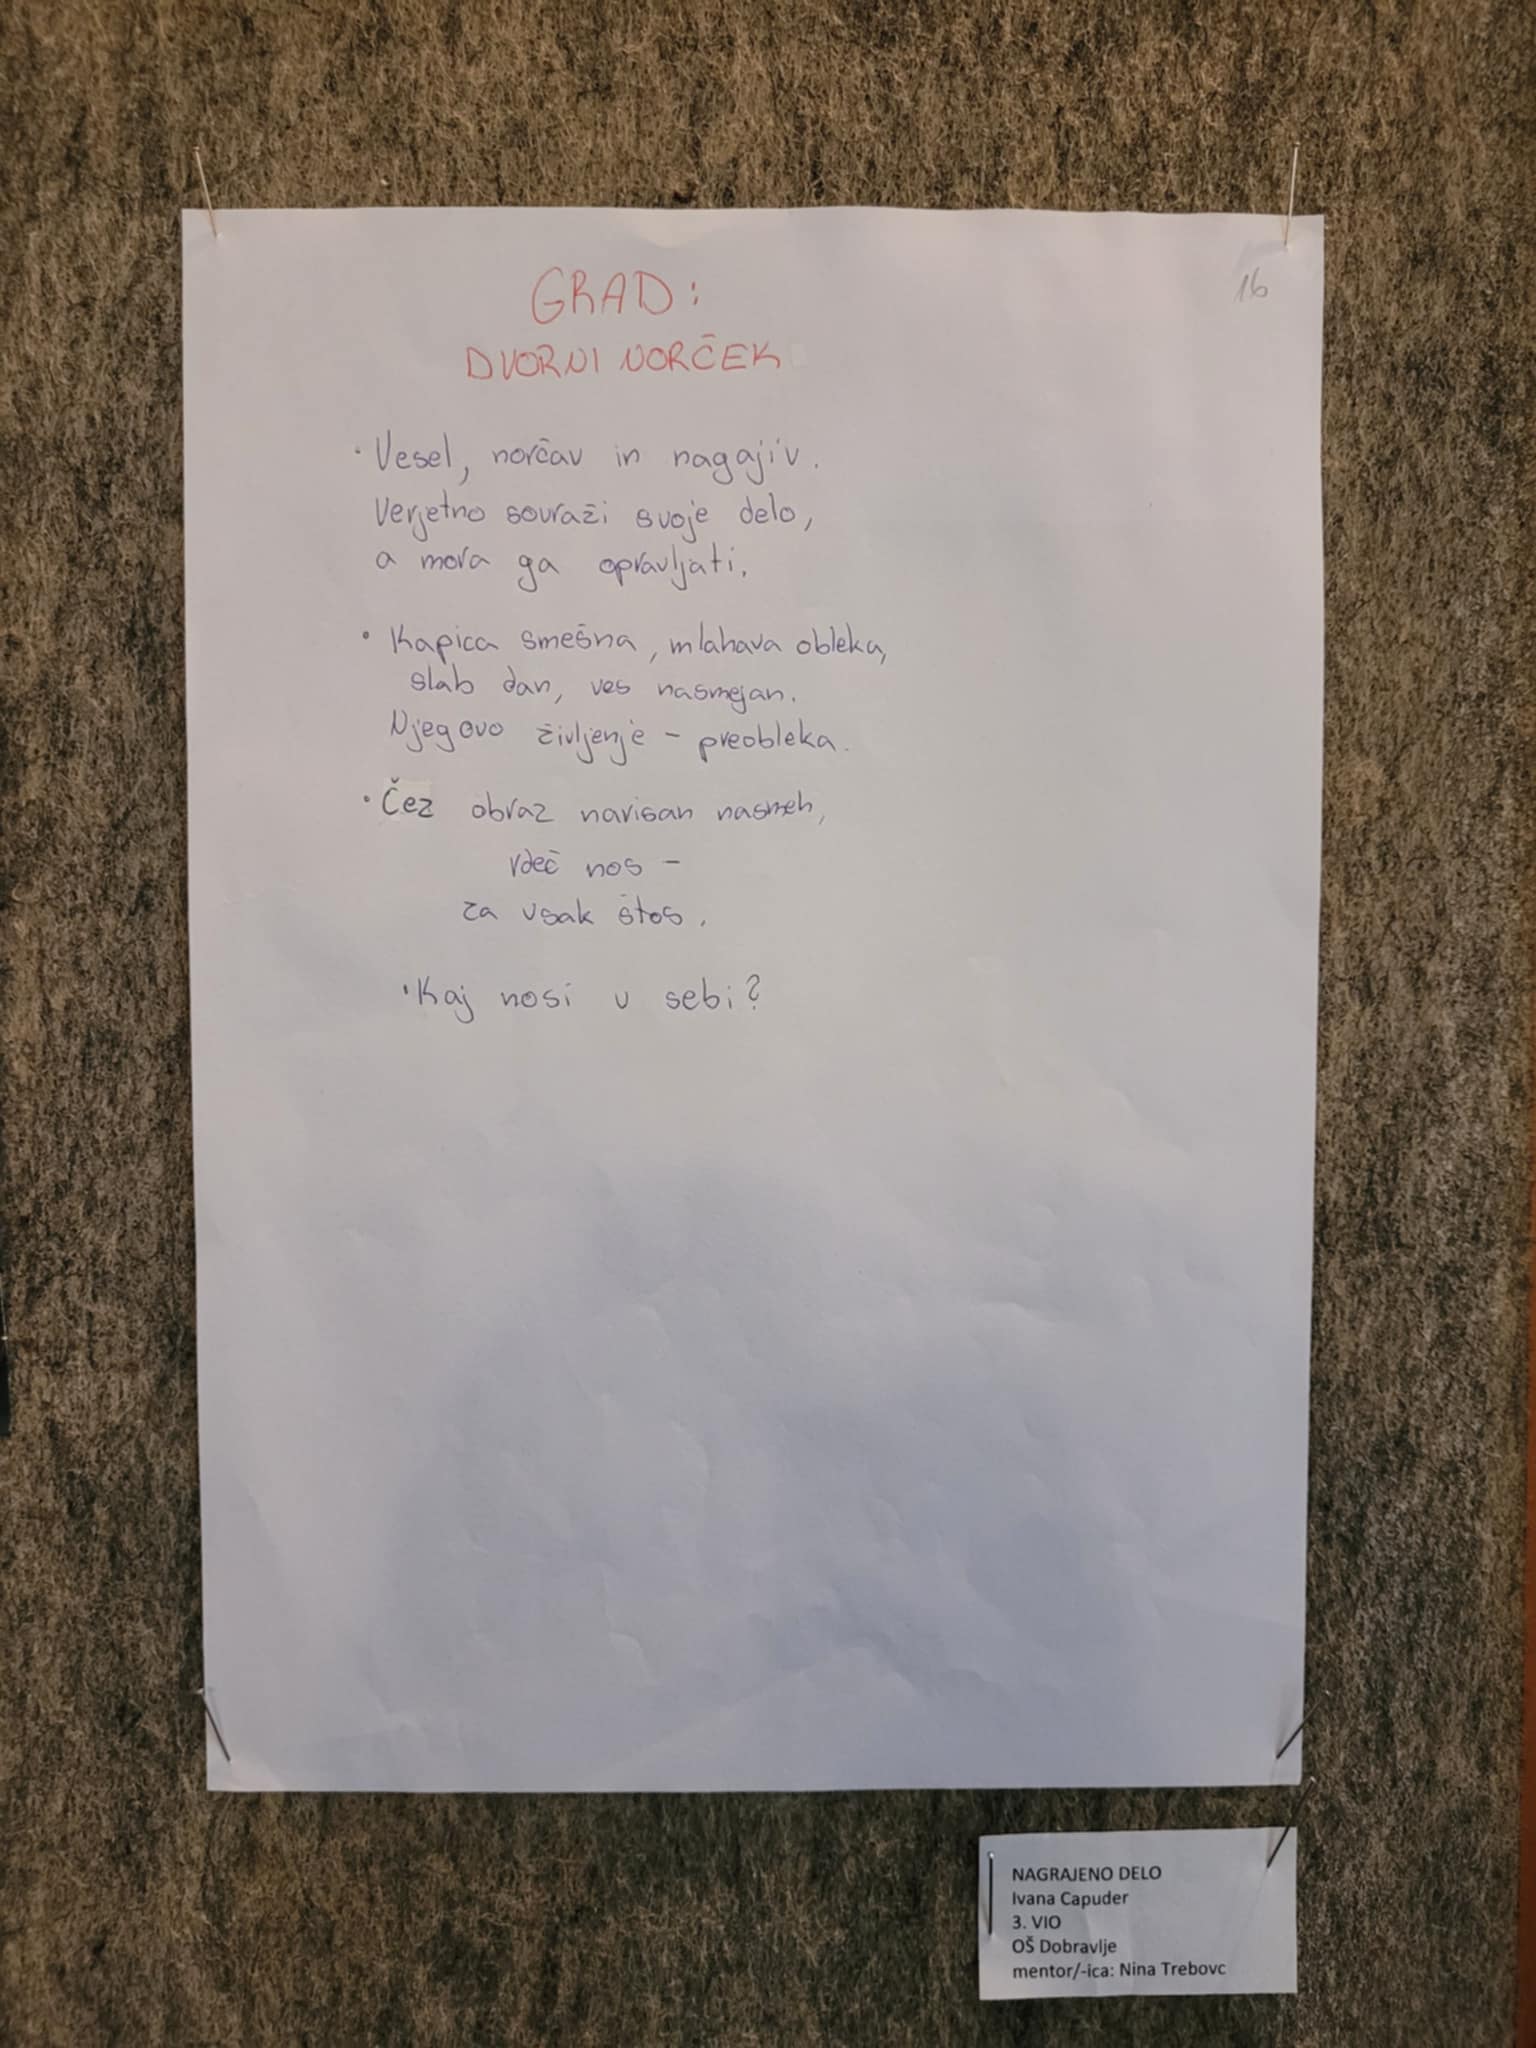 16
GRAD:
DVORNI NORČEK
• Vesel, norčav in nagajiv.
Verjetno sovraži svoje delo,
a mora ga opravljati.
• Kapica smešna, mlahava obleka,
slab dan, ves nasmejan.
Njegovo življenje - preobleka.
• Čez obraz narisan nasmeh,
rdeč nos -
za vsak štos.
• Kaj nosi v sebi?
NAGRAJENO DELO
Ivana Capuder
3. VIO
OŠ Dobravlje
mentor/-ica: Nina Trebovc